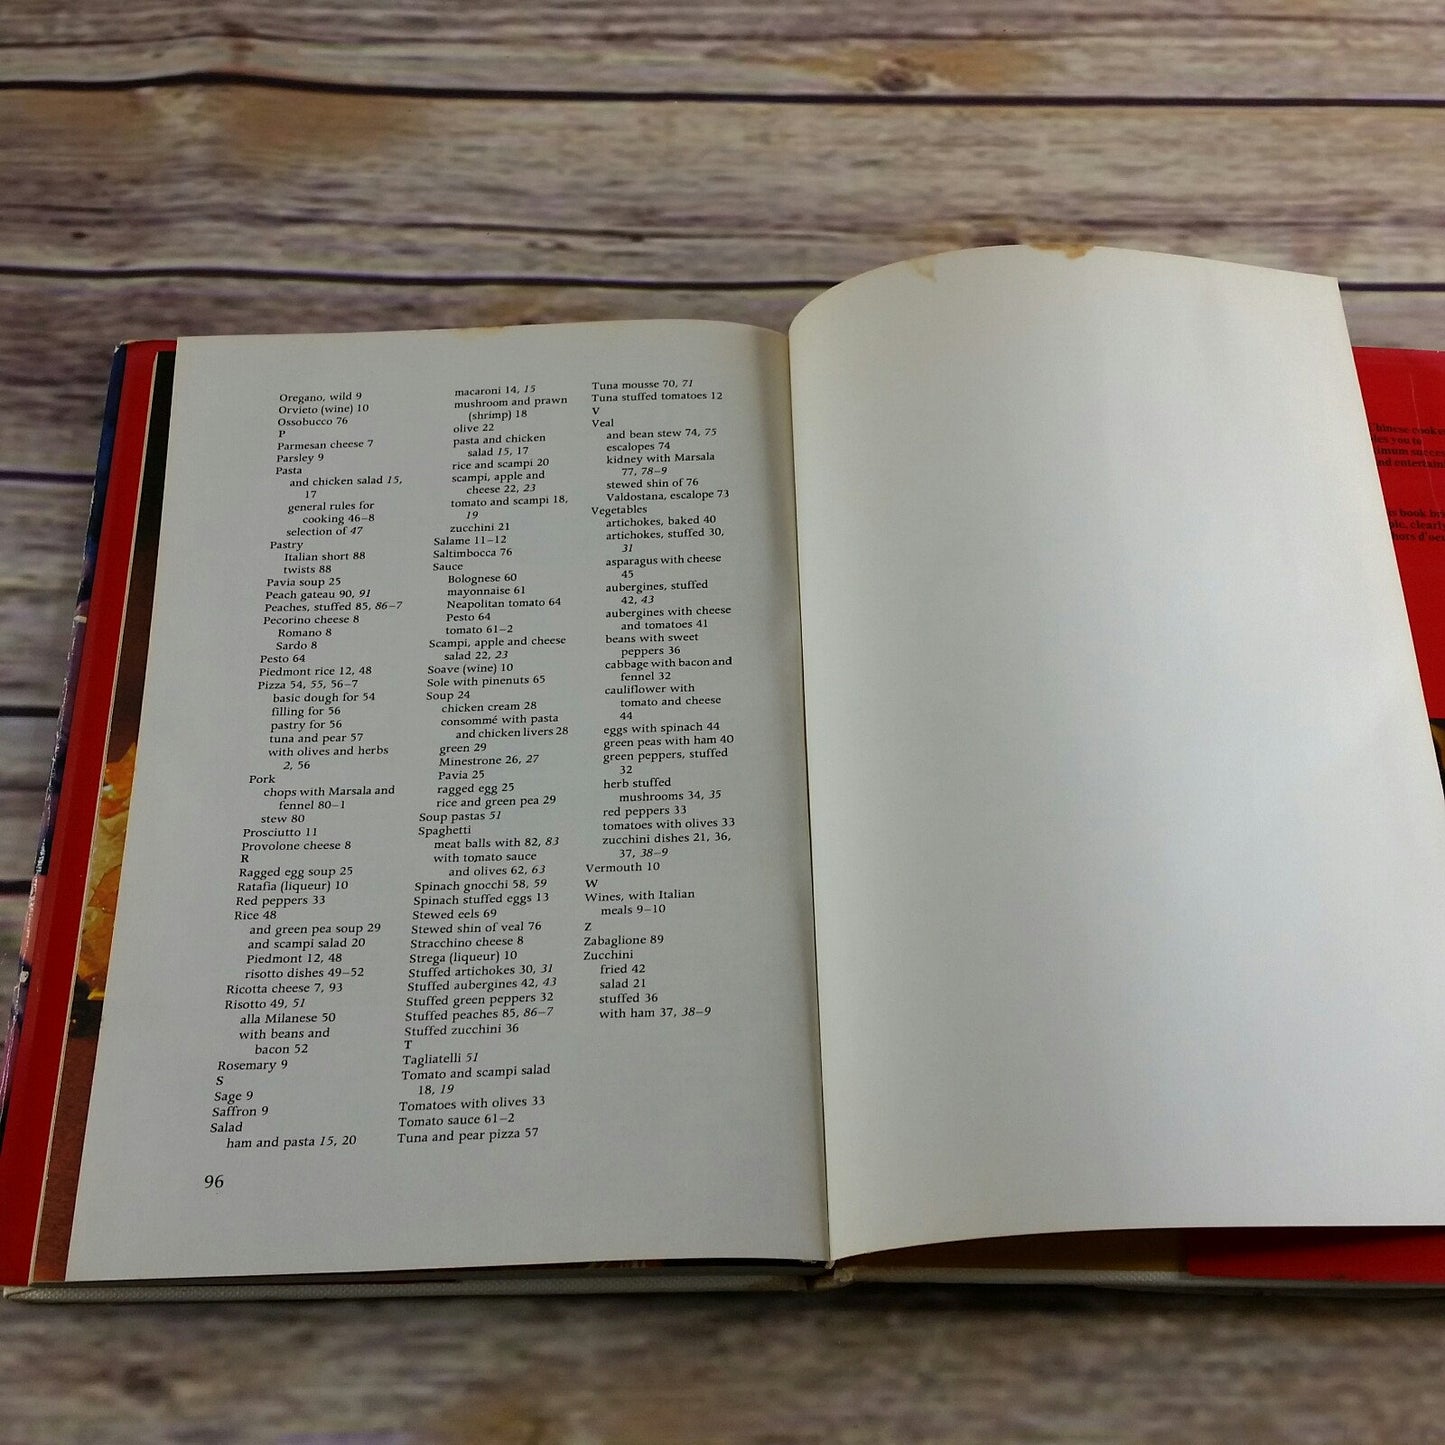 Oregano, wild 9
Orvieto (wine) 10
Ossobucco 76
P
Parmesan cheese 7
Parsley 9
Pasta
and chicken salad 15,
17
general rules for
cooking 46–8
selection of 47
Pastry
Italian short 88
twists 88
Pavia soup 25
Peach gateau 90, 91
Peaches, stuffed 85, 86–7
Pecorino cheese 8
Romano 8
Sardo 8
Pesto 64
Piedmont rice 12, 48
Pizza 54, 55, 56–7
basic dough for 54
filling for 56
pastry for 56
tuna and pear 57
with olives and herbs
2, 56
Pork
chops with Marsala and
fennel 80–1
stew 80
Prosciutto 11
Provolone cheese 8
R
Ragged egg soup 25
Ratafia (liqueur) 10
Red peppers 33
Rice 48
and green pea soup 29
and scampi salad 20
Piedmont 12, 48
risotto dishes 49–52
Ricotta cheese 7, 93
Risotto 49, 51
alla Milanese 50
with beans and
bacon 52
Rosemary 9
S
Sage 9
Saffron 9
Salad
ham and pasta 15, 20
macaroni 14, 15
mushroom and prawn
(shrimp) 18
olive 22
pasta and chicken
salad 15, 17
rice and scampi 20
scampi, apple and
cheese 22, 23
tomato and scampi 18,
19
zucchini 21
Salame 11–12
Saltimbocca 76
Sauce
Bolognese 60
mayonnaise 61
Neapolitan tomato 64
Pesto 64
tomato 61–2
Scampi, apple and cheese
salad 22, 23
Soave (wine) 10
Sole with pinenuts 65
Soup 24
chicken cream 28
consommé with pasta
and chicken livers 28
green 29
Minestrone 26, 27
Pavia 25
ragged egg 25
rice and green pea 29
Soup pastas 51
Spaghetti
meat balls with 82, 83
with tomato sauce
and olives 62, 63
Spinach gnocchi 58, 59
Spinach stuffed eggs 13
Stewed eels 69
Stewed shin of veal 76
Stracchino cheese 8
Strega (liqueur) 10
Stuffed artichokes 30, 31
Stuffed aubergines 42, 43
Stuffed green peppers 32
Stuffed peaches 85, 86–7
Stuffed zucchini 36
T
Tagliatelli 51
Tomato and scampi salad
18, 19
Tomatoes with olives 33
Tomato sauce 61–2
Tuna and pear pizza 57
Tuna mousse 70, 71
Tuna stuffed tomatoes 12
V
Veal
and bean stew 74, 75
escalopes 74
kidney with Marsala
77, 78–9
stewed shin of 76
Valdostana, escalope 73
Vegetables
artichokes, baked 40
artichokes, stuffed 30,
31
asparagus with cheese
45
aubergines, stuffed
42, 43
aubergines with cheese
and tomatoes 41
beans with sweet
peppers 36
cabbage with bacon and
fennel 32
cauliflower with
tomato and cheese
44
eggs with spinach 44
green peas with ham 40
green peppers, stuffed
32
herb stuffed
mushrooms 34, 35
red peppers 33
tomatoes with olives 33
zucchini dishes 21, 36,
37, 38–9
Vermouth 10
W
Wines, with Italian
meals 9–10
Z
Zabaglione 89
Zucchini
fried 42
salad 21
stuffed 36
with ham 37, 38–9
96
Chinese
you to
succ
book
clearly
hors d'oe